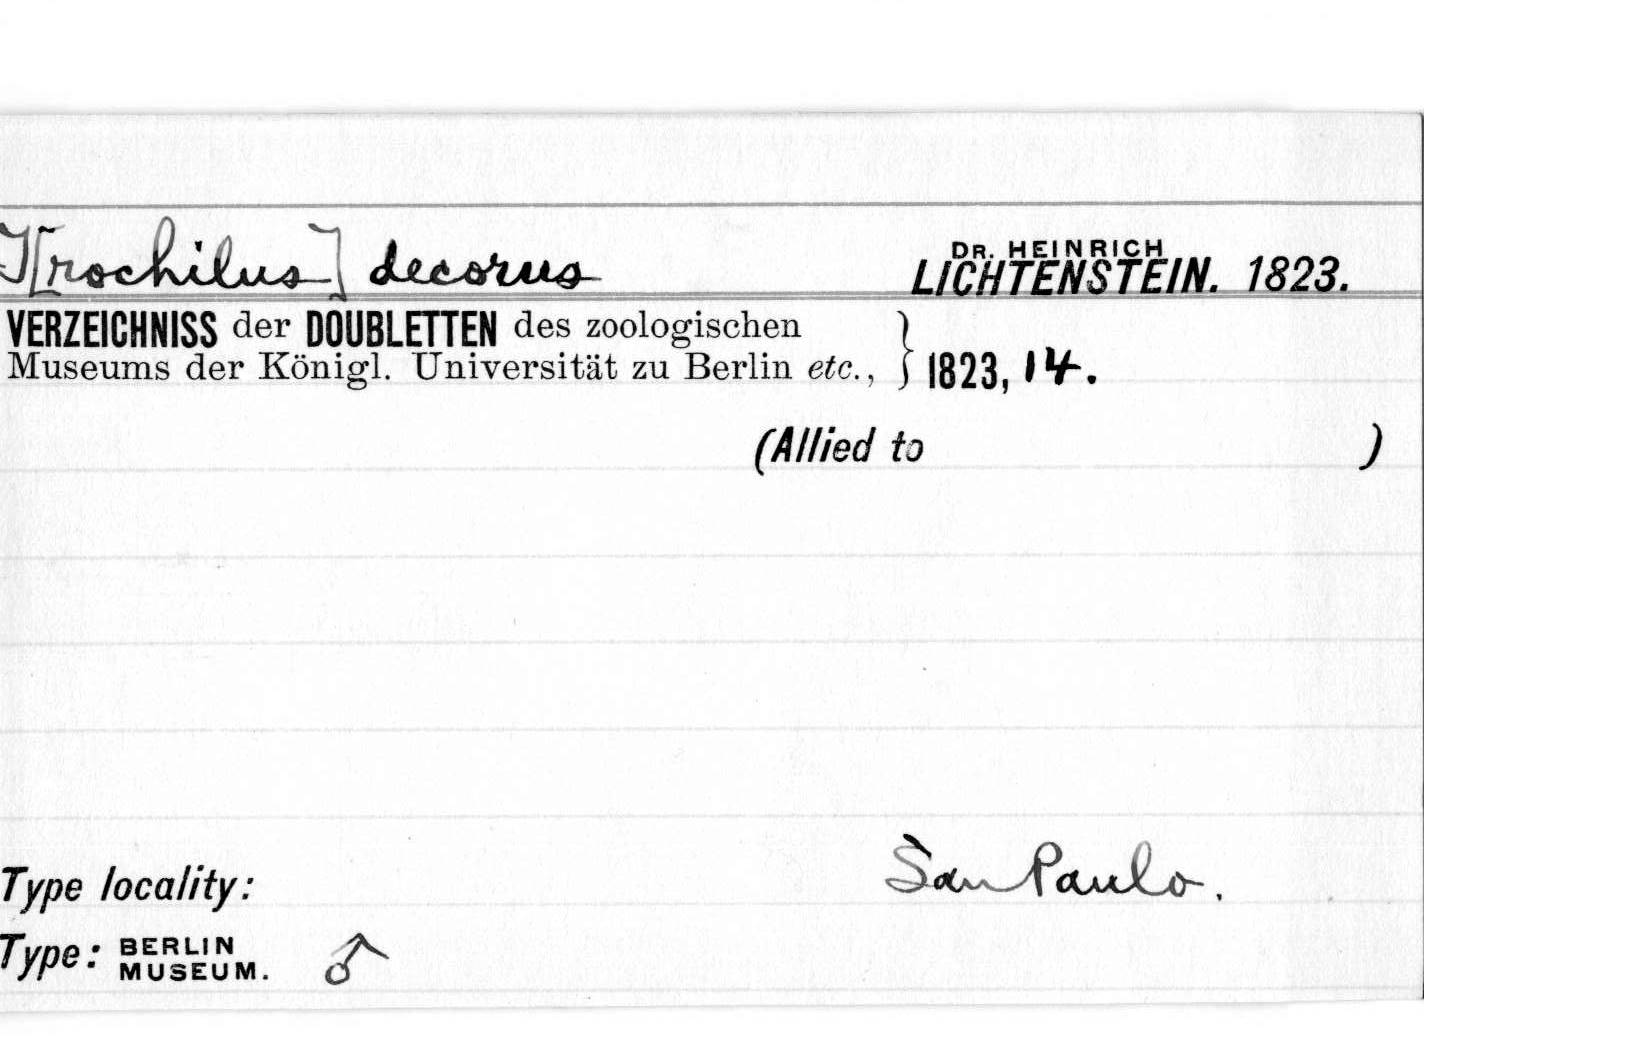 T[rochilus] decorus DR. HEINRICH LICHTENSTEIN. 1823.
VERZEICHNISS der DOUBLETTEN des zoologischen
Museums der Königl. Universität zu Berlin etc., } 1823, 14.
(Allied to )
San Paulo.
Type locality:
Type: BERLIN MUSEUM. ♂